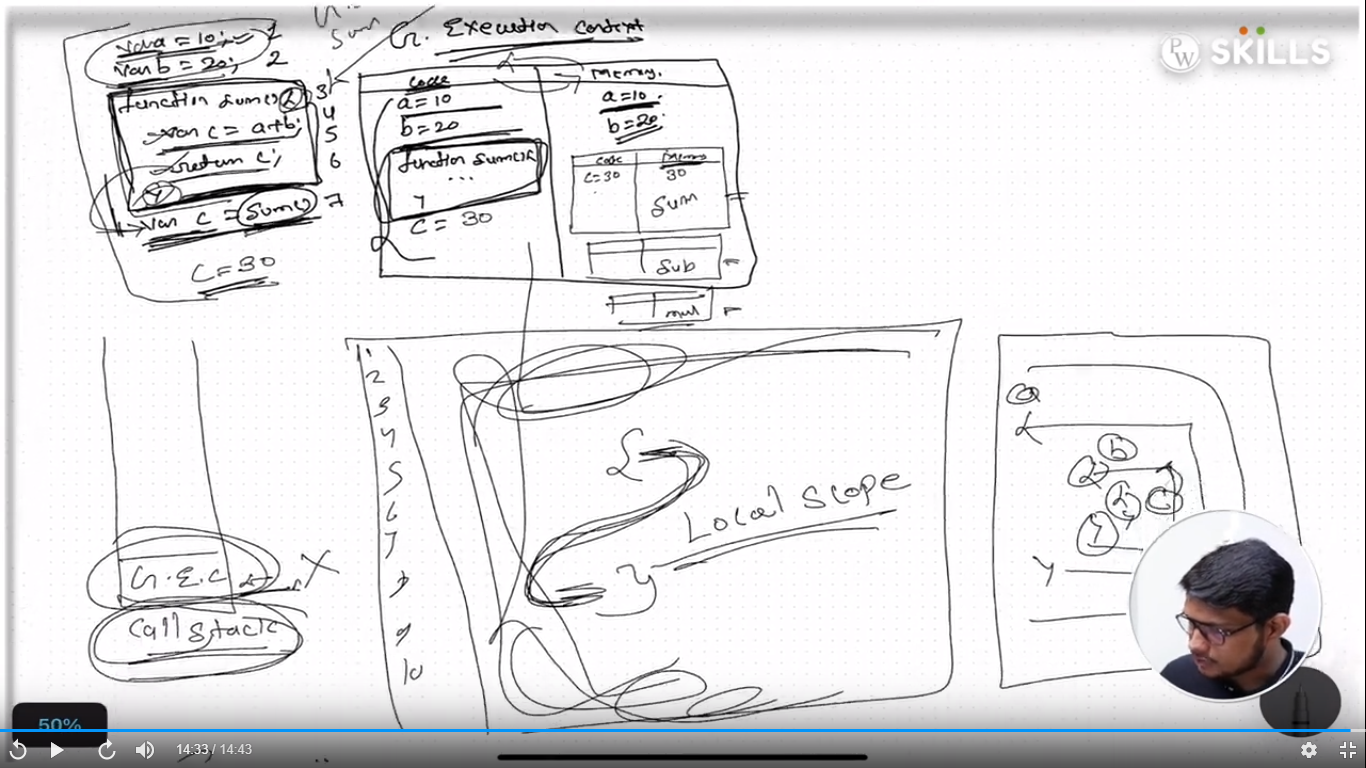 var a = 10; = 1
var b = 20; 2
function sum() { 3
var c = a+b; 4
5
return c; 6
}
var c = sum() 7
c = 30
Sum
G. Execution context
code
memory.
a = 10
b = 20
function sum() {
...
}
c = 30
a = 10.
b = 20.
code
Memory
c = 30
30
Sum
Sub
mul
G.E.C
X
Call Stack
1.
2
3
4
5
6
7
8
9
10
{
Local Scope
}
a
{
b
{
c
}
}
PW SKILLS
50%
14:33 / 14:43